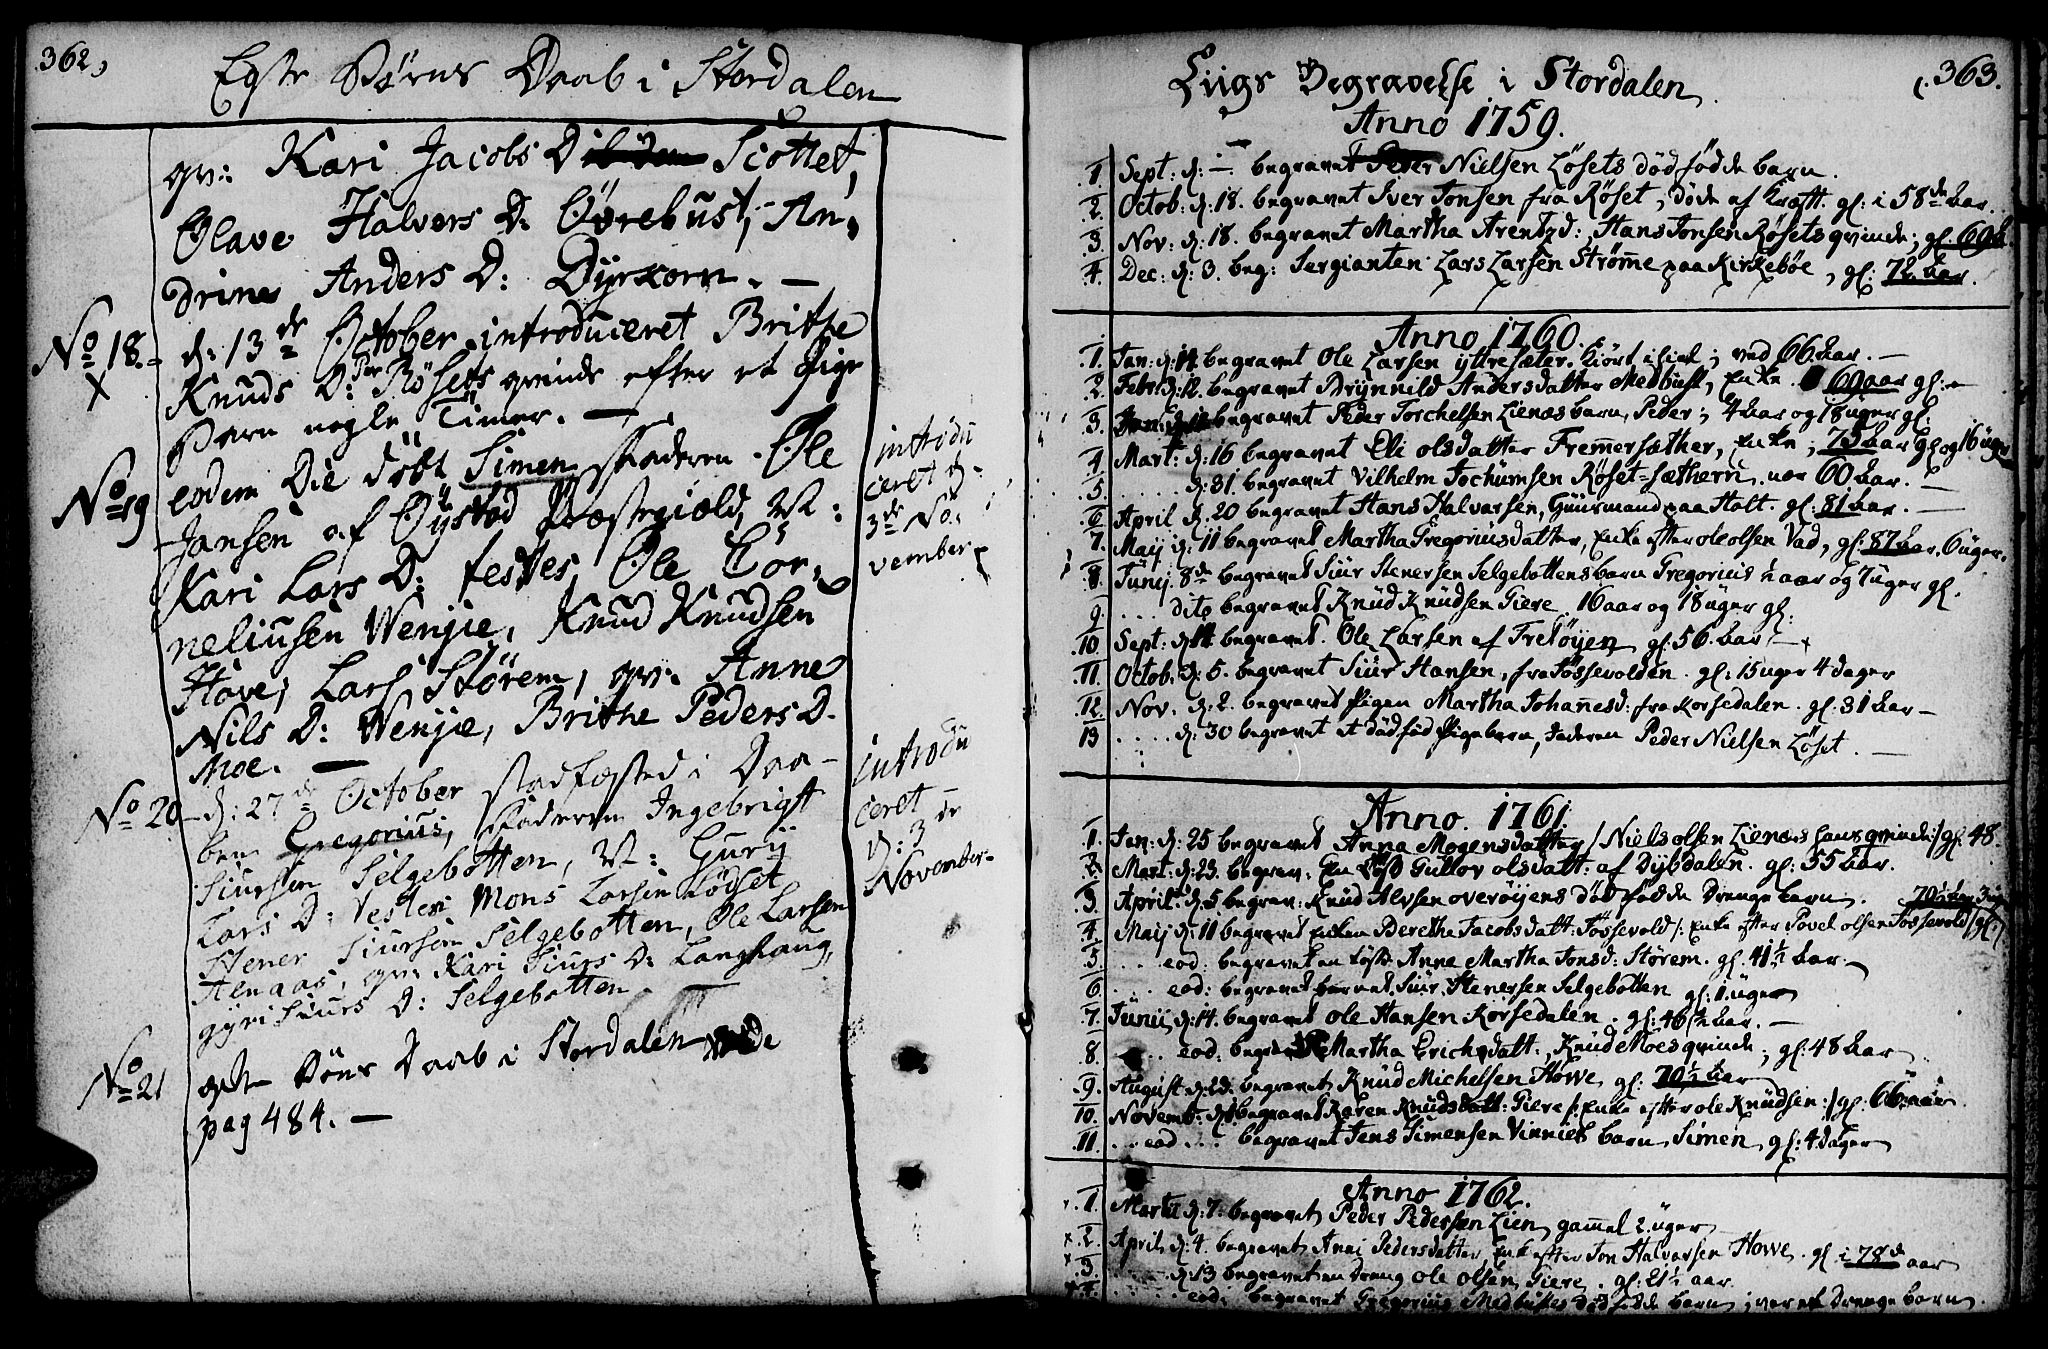 362,
Egte Børns Daab i Stordalen
qv: Kari Jacobs D Scottet,
Olave Halvors D: Overbust, An-
drine Anders D: Dyrkorn. —
No 18. d: 13de October introduceret Brithe
Knuds D: Per Røsets qvinde efter et Pige
Barn nogle Timer. —
No 19 eodem Die døbt Simen, Faderen Ole
Jansen af Præstegiæld, M:
Kari Lars D: testes Ole Cor-
neliusen Wenjie, Knud Knudsen
Hove, Lars Størem, qv: Anne
Nils D: Wenjie, Brithe Peders D.
Moe. —
introdu
ceret d.
3de No-
vember
No 20 d: 27de October stadfæsted i Daa-
ben Gregorius, Faderen Ingebrigt
Siursen Selgebotten, M: Gurij
Lars D: Testes Mons Larsen Lødset
Stener Siursen Selgebotten, Ole Larsen
Alnaas, qv: Kari Siurs D: Langhaug,
gyri Siurs D: Selgebotten.
introdu
ceret
d: 3de
November
No 21 egte Børns Daab i Stordalen vide
pag 484. —
363.
Liigs Begravelse i Stordalen
Anno 1759.
1. Sept: d: — begravet Peder Nielsen Løsets død fødde barn.
2. Octob: d: 18. begravet Iver Jonsen fra Røset, døde af Kræft. gl: i 58de aar.
3. Nov: d: 18. begravet Martha Arentzd: Hans Jonsen Røsets qvinde; gl. 69
4. Dec: d: 3. beg: Sergianten Lars Larsen Strømme paa Kirkebøe, gl: 72 aar.
Anno 1760.
1. Jan: d: 14 begravet Ole Larsen yttresæter. ved 66 aar. —
2. Febr: d: 12. begravet Brynnild Andersdatter Medbust, Enke. 69 aar gl: —
3. begravet Peder Torchelsen Lienæs barn, Peder; 4 aar og 18 uger gl:
4. Mart: d: 16 begravet Eli olsdatter Fremmersæther, Enke; 75 aar gl og 16 uger
5. . . . . d: 31. begravet Vilhelm Jochumsen Røset-sæthern, nær 60 aar. —
6. April d. 20 begravet Hans Halvorsen, Huusmand paa Holt. gl: 81 aar. —
7. Maij d: 11 begravet Martha Gregoriusdatter, Enke efter ole olsen Vad, gl: 87 aar, 6 uger.
8. Junij 8de begravet Siur Stenersen Selgebottens barn Gregorius ½ aar og 7 uger gl.
9. . . . . dito begravet Knud Knudsen Giere, 16 aar og 18 uger gl:
10. Sept: d: 14 begravet. Ole Larsen af Fretøyen gl: 56. aar —
11. Octob: d: 5. begravet Siur Hansen, fra Fossevolden. gl: 15 uger 4 dager
12. Nov. d: 2. begravet Pigen Martha Johannesd: fra Korsedalen. gl. 31 aar —
13 . . . . d: 30 begravet et dødfød Pigebarn, faderen Peder Nielsen Løset. —
Anno. 1761.
1. Jan: d: 25 begravet Anna Mogensdatter / Niels olsen Lienæs hans qvinde :/ gl: 48
2. Mart: d: 23. begrav: En Gullov olsdatt: af Dybdalen. gl: 55 aar.
3. April: d. 5 begrav: Knud Alvsen overøyens død fødde Drenge barn.
4. Maij d: 11 begravet enken Berethe Jacobsdatt: Fossevold /: Enke efter Povel olsen Fossevold / gl:
5. . . . eod: begravet en Anne Martha Jonsd: Størem. gl. 41½ aar. —
6. . . . eod: begravet Siur Stenersen Selgebotten gl: 1. uger
7. Junij d: 14. begravet ole Hansen Korsedalen. gl: 46½ aar. —
8. . . . eod: begravet Martha Erichsdatt:, Knud Moes qvinde; gl: 48 aar
9. August d: 23: begravet Knud Michelsen Howe gl: 70½ aar
10. Novemb: d: 1 begravet Karen Knudsdatt: Giere /: Enke efter ole Knudsen :/ gl. 66. aar.
11. . . eod . . . begravet Jens Simensen Vinnies barn Simen, gl: 4 dager
Anno 1762.
1. Martii d: 7. begravet Peder Pedersen Lien, gammel 2. uger
x 2. April d. 4. begravet Anni Pedersdatter, Enke efter Jon Halvorsen Howe. gl: i 78de aar
x 3. . . . . d: 13 begravet en dreng Ole Olsen Giere. gl: 21½ aar.
4. . . . . eod: begravet Gregorius Medbustes død fødde barn; var et Drenge barn.